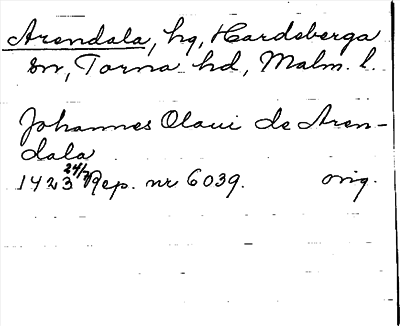 Arendala, hg, Hardeberga
sn, Torna hd, Malm. l.
Johannes Olaui de Aren-
dala
1423 24/7 Rep. nr 6039. orig.